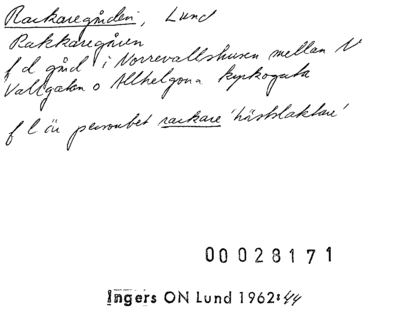 Rackaregården, Lund
Rakkaregåren
f d gård i Norrevallshusen mellan N
Vallgatan o Allhelgona kyrkogata
f l är personbet rackare 'hästslaktare'
00028171
Ingers ON Lund 1962:44